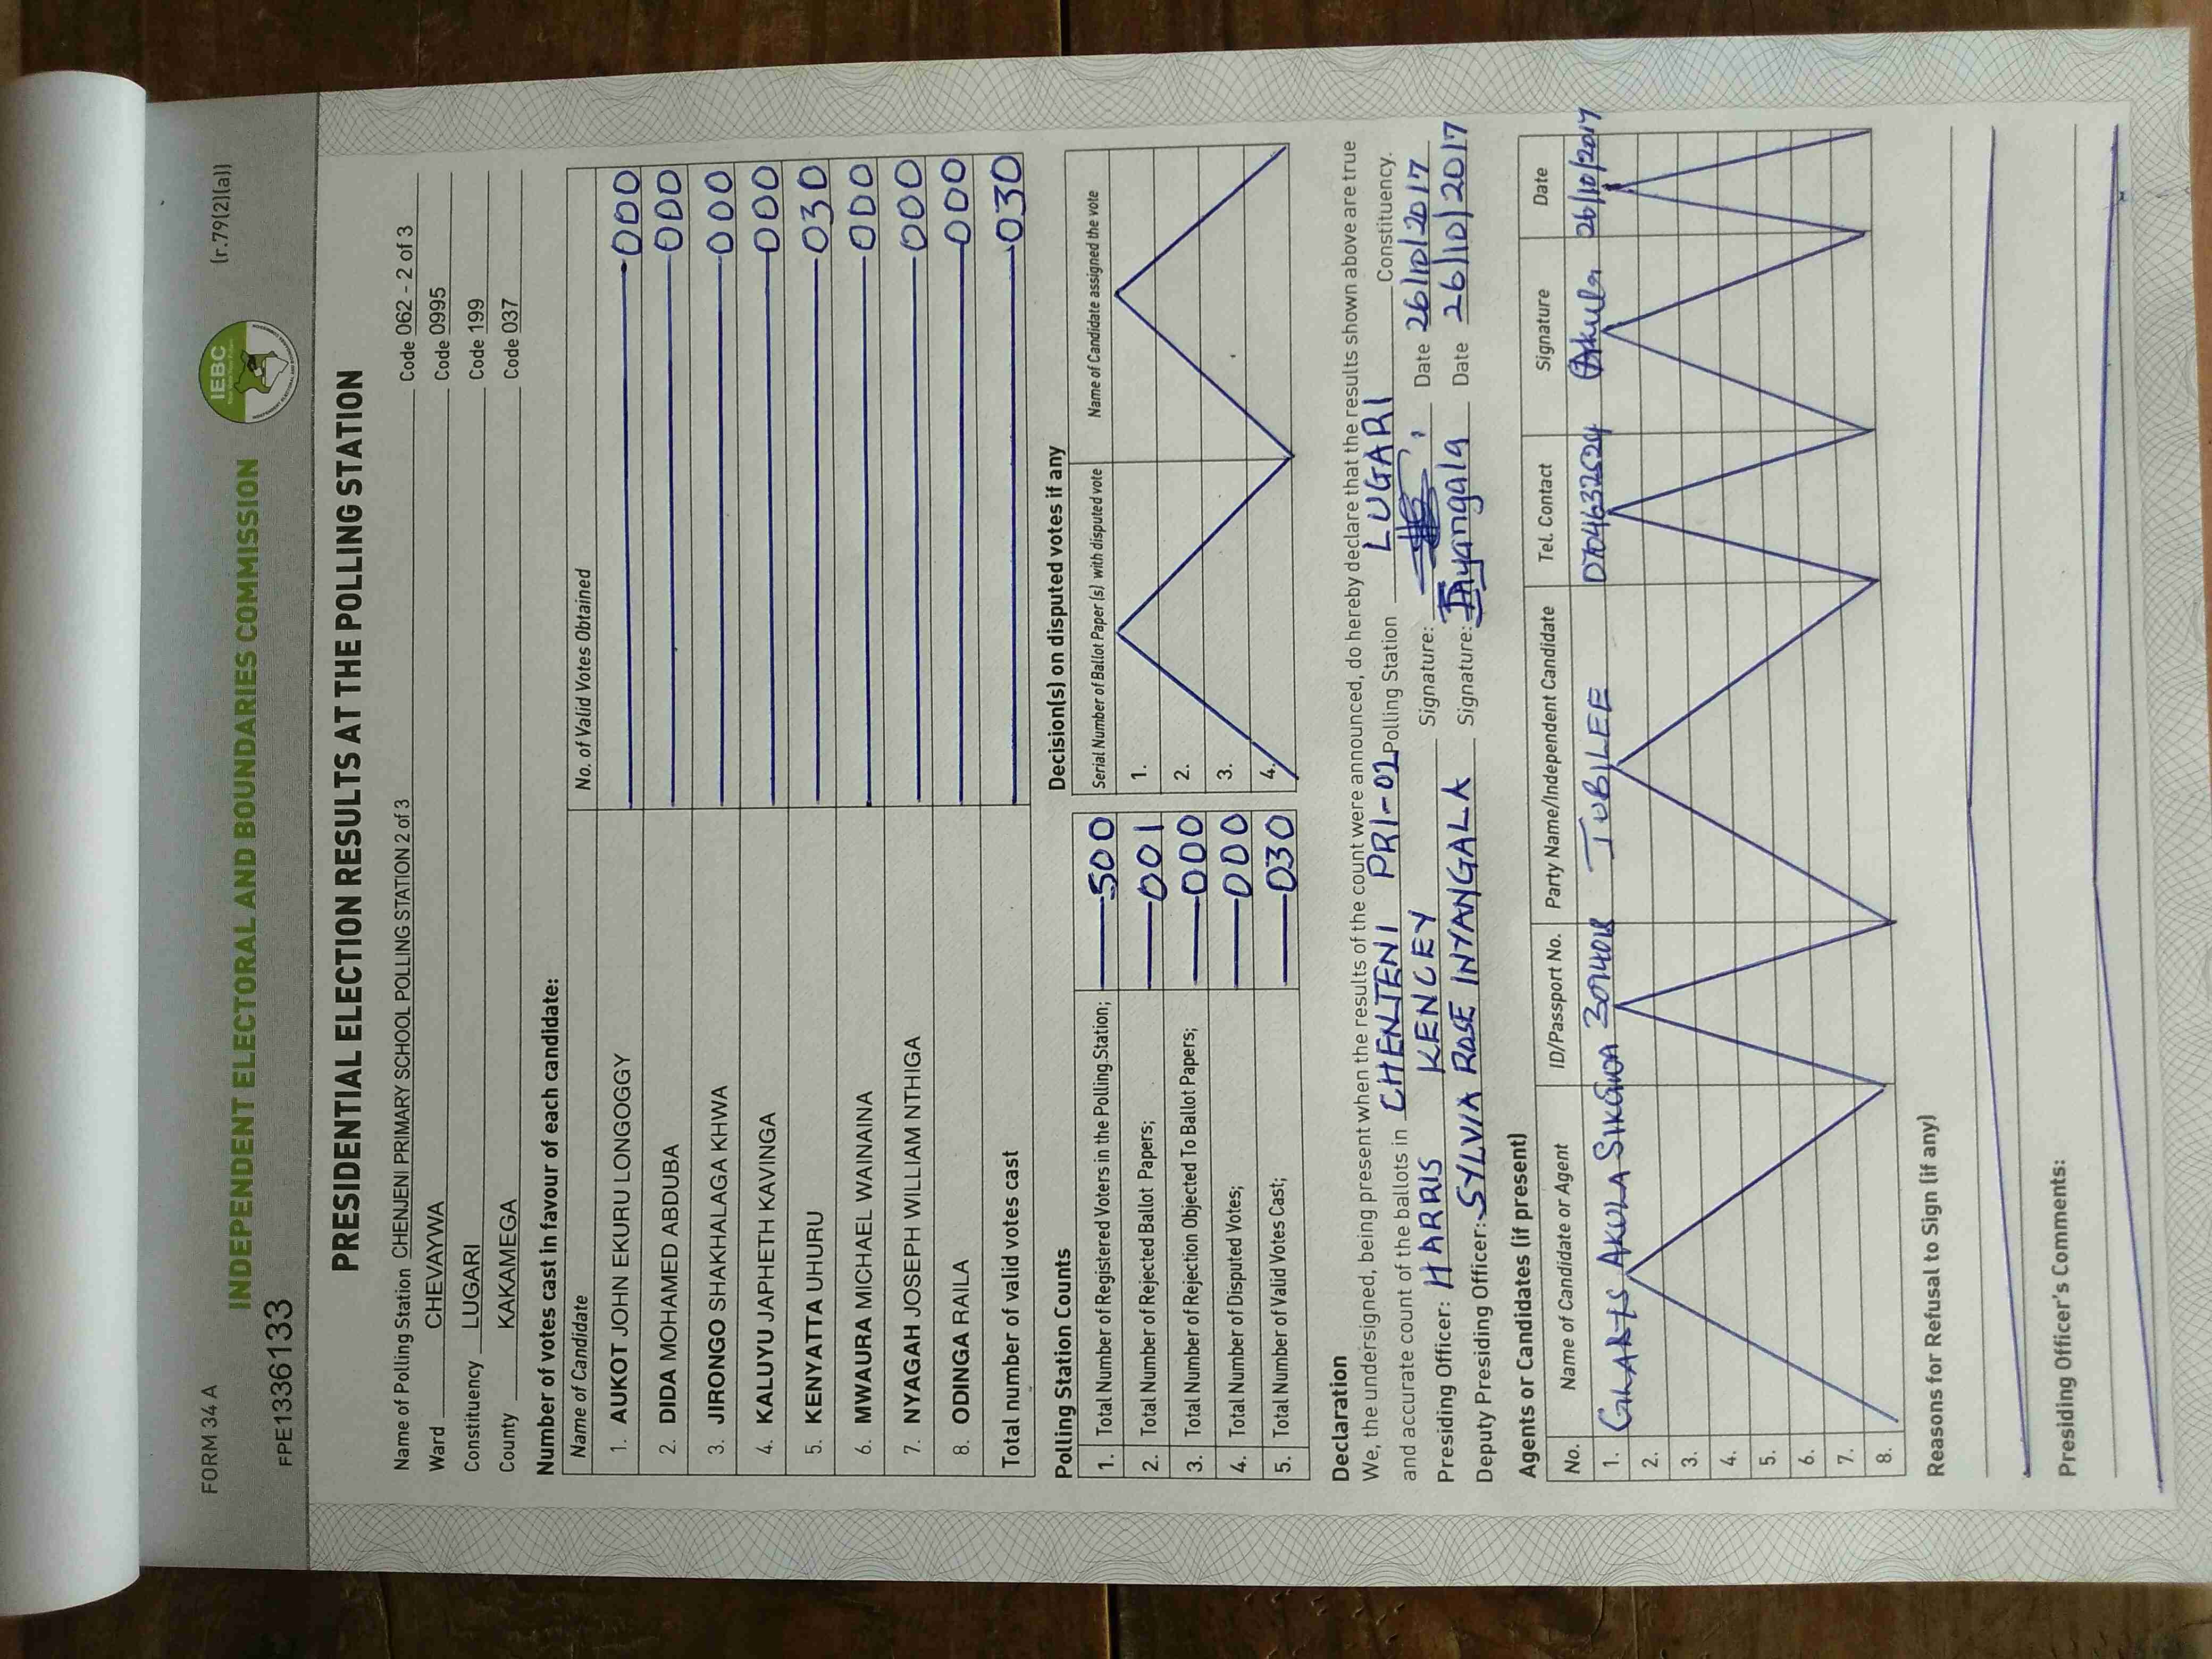 FORM 34 A
(r.79(2)(a))
INDEPENDENT ELECTORAL AND BOUNDARIES COMMISSION
IEBC
FPE1336133
PRESIDENTIAL ELECTION RESULTS AT THE POLLING STATION
Name of Polling Station CHENJENI PRIMARY SCHOOL POLLING STATION 2 of 3 Code 062 - 2 of 3
Ward CHEVAYWA Code 0995
Constituency LUGARI Code 199
County KAKAMEGA Code 037
Number of votes cast in favour of each candidate:
Name of Candidate No. of Valid Votes Obtained
1. AUKOT JOHN EKURU LONGOGGY 000
2. DIDA MOHAMED ABDUBA 000
3. JIRONGO SHAKHALAGA KHWA 000
4. KALUYU JAPHETH KAVINGA 000
5. KENYATTA UHURU 030
6. MWAURA MICHAEL WAINAINA 000
7. NYAGAH JOSEPH WILLIAM NTHIGA 000
8. ODINGA RAILA 000
Total number of valid votes cast 030
Polling Station Counts
1. Total Number of Registered Voters in the Polling Station; 500
2. Total Number of Rejected Ballot Papers; 001
3. Total Number of Rejection Objected To Ballot Papers; 000
4. Total Number of Disputed Votes; 000
5. Total Number of Valid Votes Cast; 030
Decision(s) on disputed votes if any
Serial Number of Ballot Paper (s) with disputed vote Name of Candidate assigned the vote
1.
2.
3.
4.
Declaration
We, the undersigned, being present when the results of the count were announced, do hereby declare that the results shown above are true
and accurate count of the ballots in CHENJENI PRI-02 Polling Station LUGARI Constituency.
Presiding Officer: HARRIS KENCEY Signature: Date 26/10/2017
Deputy Presiding Officer: SYLVIA ROSE INYANGALA Signature: Inyangala Date 26/10/2017
Agents or Candidates (if present)
No. Name of Candidate or Agent ID/Passport No. Party Name/Independent Candidate Tel. Contact Signature Date
1. AKOLA JUBILEE 26/10/2017
2.
3.
4.
5.
6.
7.
8.
Reasons for Refusal to Sign (if any)
Presiding Officer's Comments: